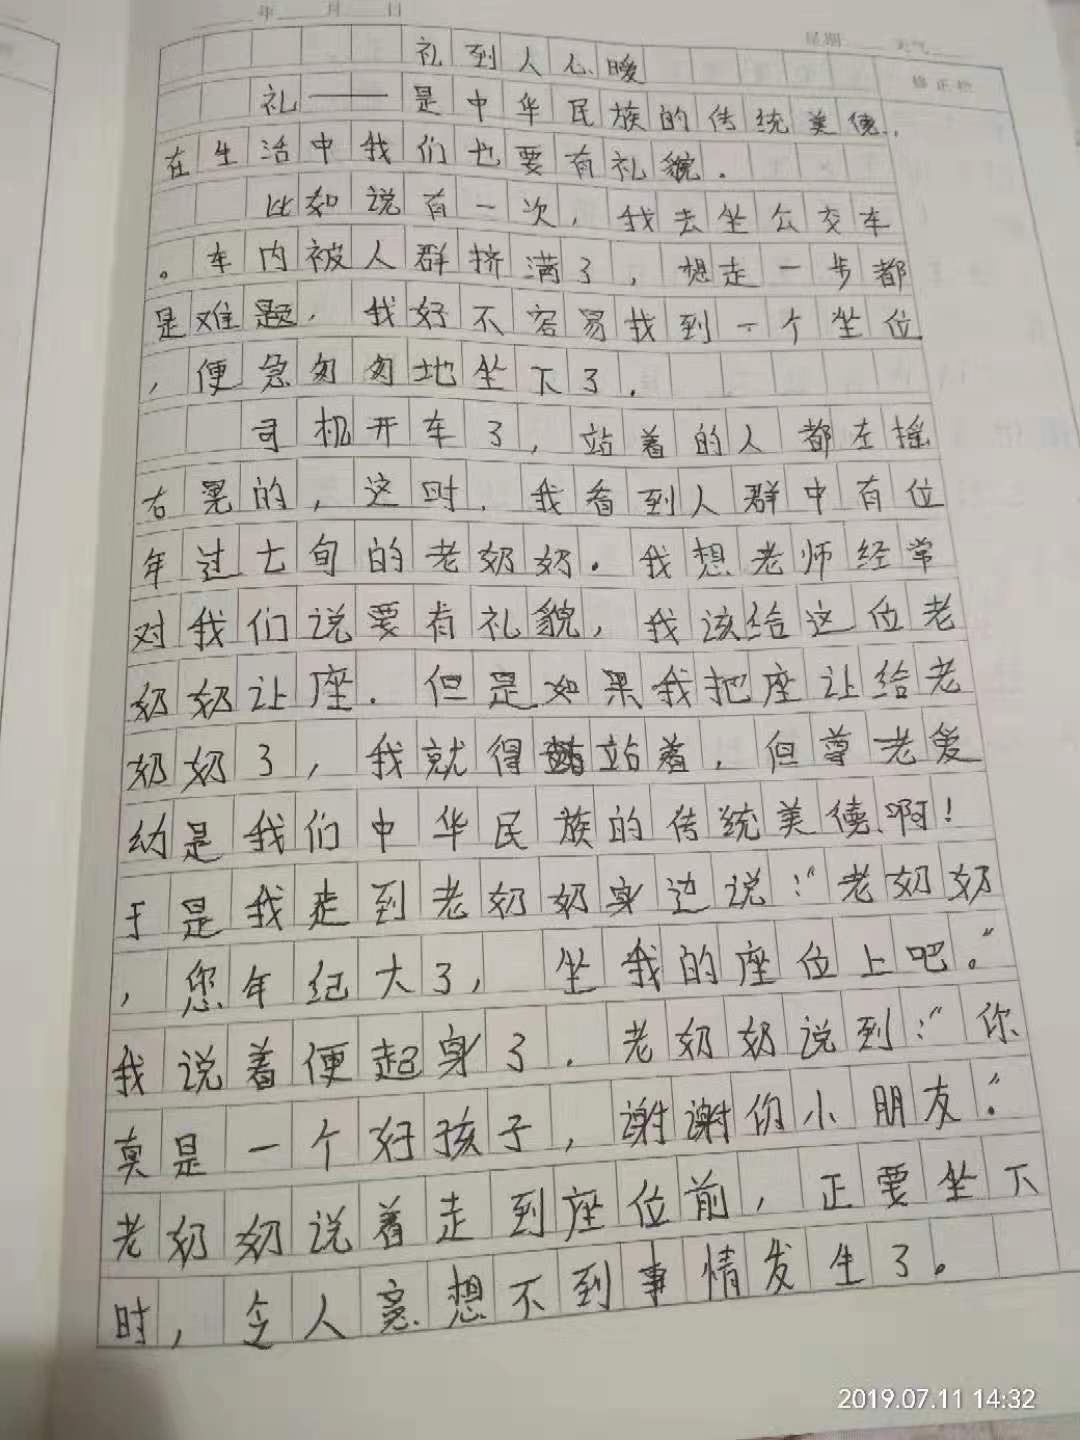 年 月 日
星期 天气
修正栏
礼到人心暖
礼——是中华民族的传统美德，
在生活中我们也要有礼貌．
比如说有一次，我去坐公交车
。车内被人群挤满了，想走一步都
是难题，我好不容易找到一个坐位
，便急匆匆地坐下了．
司机开车了，站着的人都左摇
右晃的，这时，我看到人群中有位
年过七旬的老奶奶．我想老师经常
对我们说要有礼貌，我该给这位老
奶奶让座．但是如果我把座让给老
奶奶了，我就得站着，但尊老爱
幼是我们中华民族的传统美德啊！
于是我走到老奶奶身边说："老奶奶
，您年纪大了，坐我的座位上吧。"
我说着便起身了．老奶奶说到："你
真是一个好孩子，谢谢你小朋友。"
老奶奶说着走到座位前，正要坐下
时，令人意想不到事情发生了。
2019.07.11 14:32